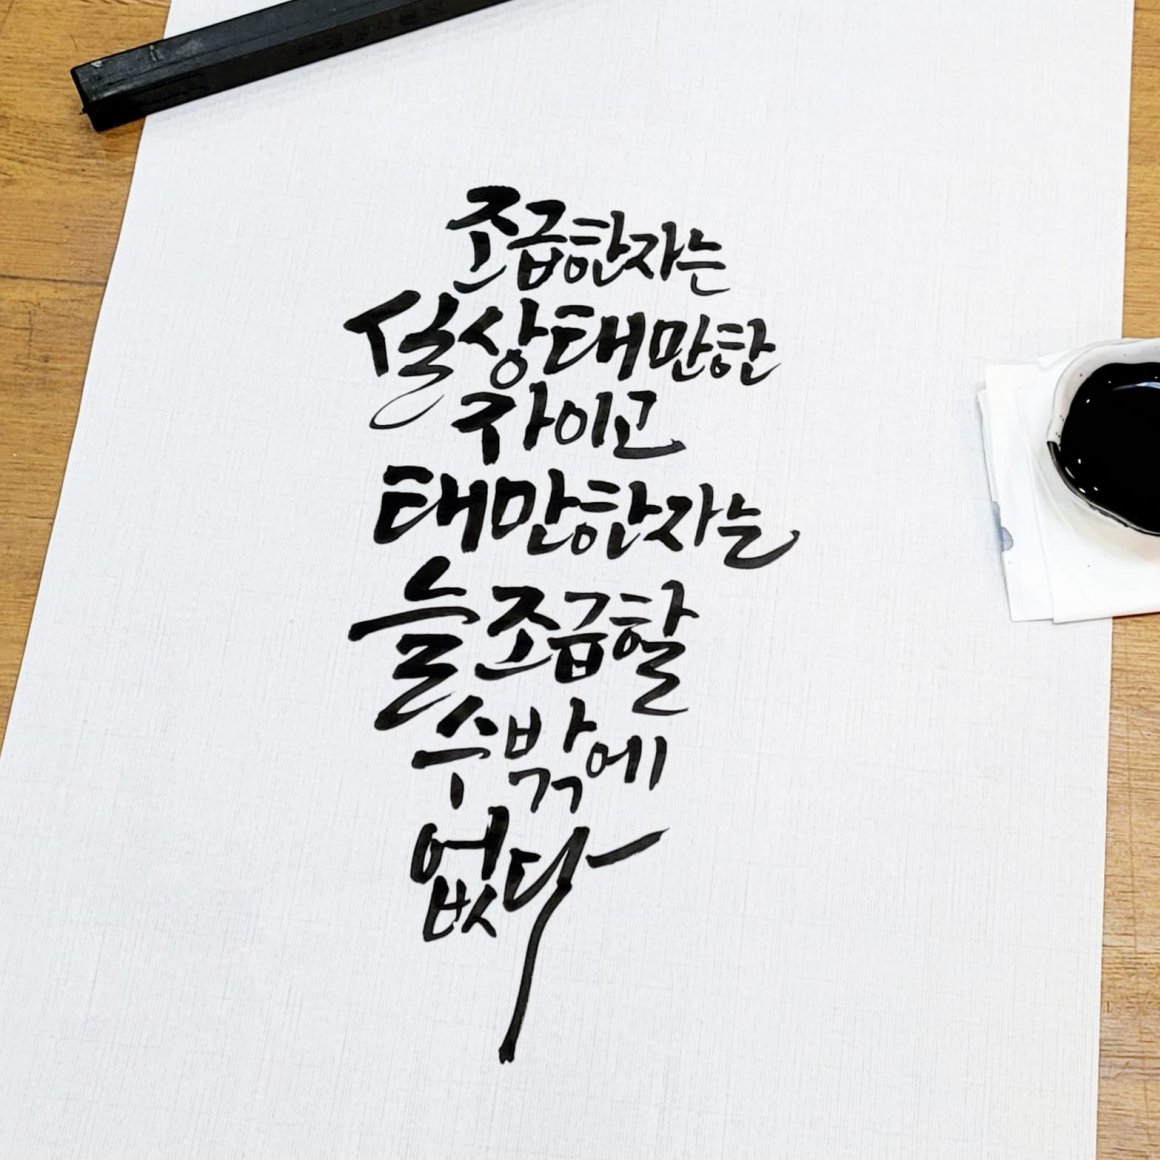 조급한자는
실상태만한
자이고
태만한자는
늘조급할
수밖에
없다